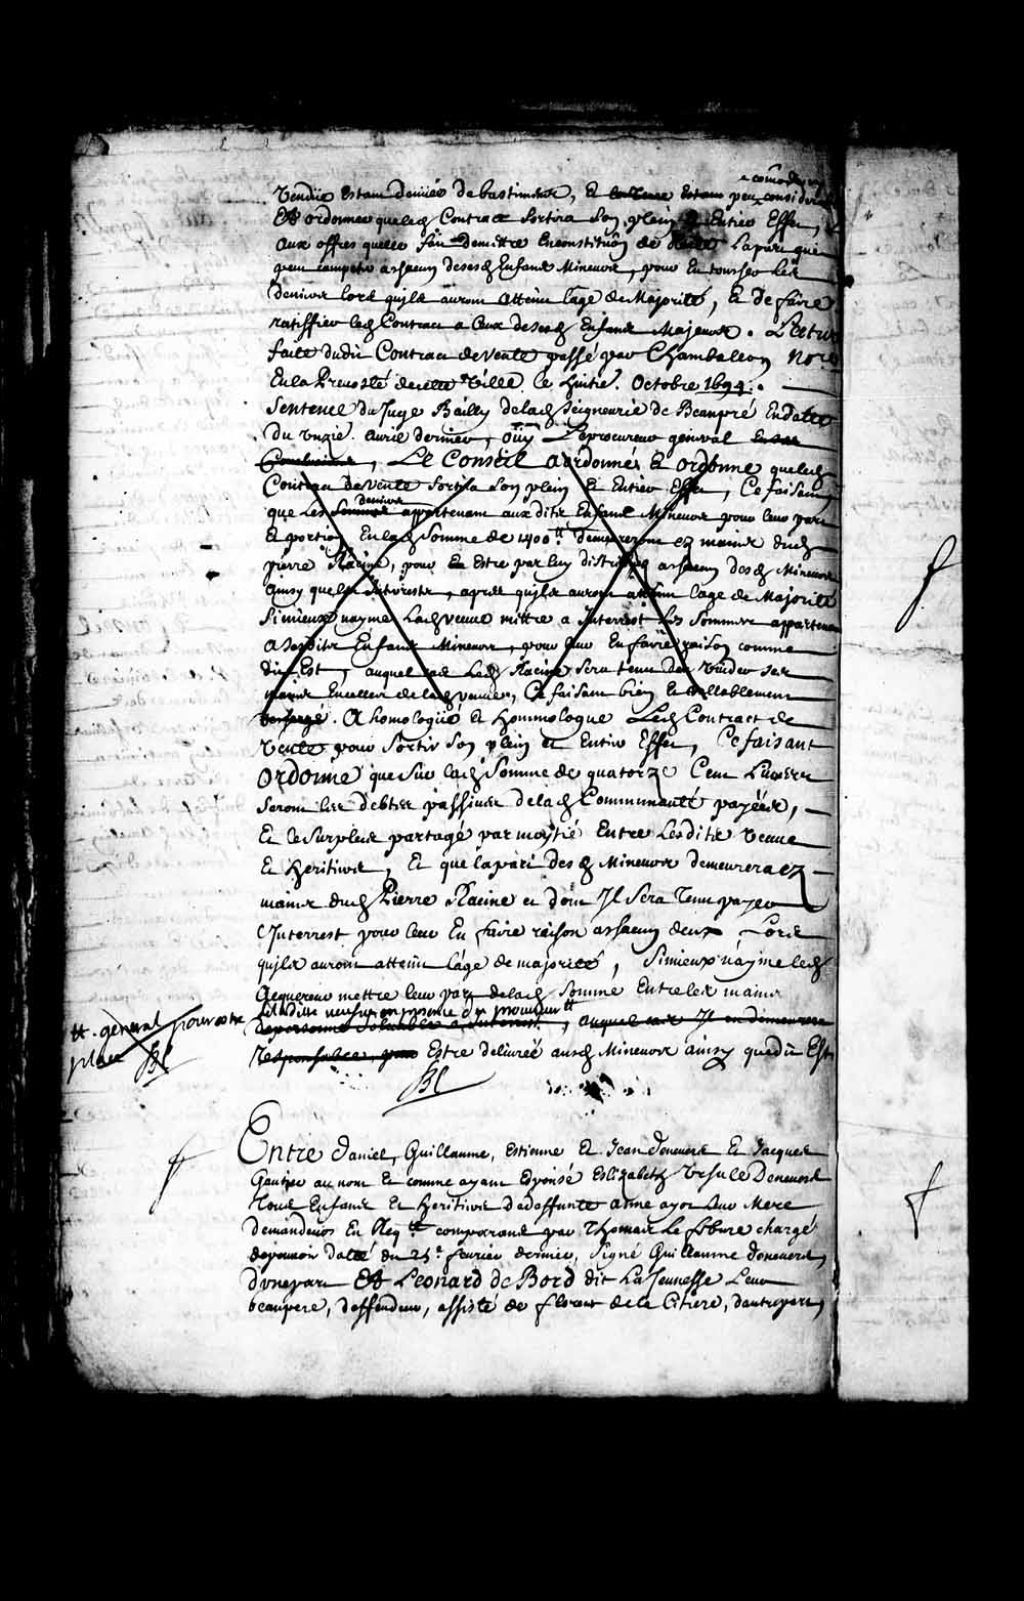 e comode
Vendüe estant denüée de bastimens, Et estans peu considerable
Et ordonner que led Contract Sortira Son plein Et Entier Effet,
aux offres quelle fait de mettre En constitution de la part qui
peut competer a chacun de sesd Enfans Mineurs, pour En toucher les
deniers lors quils auront atteint l'age de Majorité, Et de faire
ratiffier led Contract a Ceux de sesd Enfans Majeurs. Lecture
faite dudit Contract de vente passé par Chambalon Nore
En la Prevosté de cette Ville le huitie. Octobre 1694.
Sentence du Juge Bailly de lad Seigneurie de Beaupré En datte
du unzie. avril dernier, Oüy Le procureur general
Conclusions, Le Conseil a ordonné Et ordonne que led
Contract de Vente Sortira Son plein Et Entier Effet, Ce faisant
deniers
que Les Sommes appartenant aux dits Enfans Mineurs pour leur part
Et portion En lad Somme de 1400tt demeureront ez mains dud
pierre Racine, pour En Estre par luy distribué a chacun desd Mineurs
ainsy que les Interests, aprés quils auront atteint lage de Majorité
Si mieux nayme Lad veuve mettre a Interest les Sommes appartenant
a sesdits Enfans Mineurs, pour leur En faire raison comme
dit Est, auquel cas Led Racine Sera tenu den Vuider ses
mains En celles de lad veuve, Ce faisant bien Et vallablement
deschargé. A homologüé Et Hommologue Led Contract de
Vente pour Sortir Son plein et Entier Effet, Ce faisant
Ordonne que Sur lad Somme de quatorze Cent Livres
Seront les debtes passives de lad Communauté payées,
Et le Surplus partagé par moytié Entre Lesdits Veuve
Et Heritiers, Et que la part desd Mineurs demeurera ez
mains dud Pierre Racine et dont Il Sera Tenu payer
l'Interrest pour leur En faire raison a chacun deux Lors
quils auront atteint l'age de majorité, Si mieux n'ayme led
Acquereur mettre leur part de lad Somme Entre les mains
en presence du procureur tt
de personne Solvable a Interest, auquel cas Il en demeurera
tt. general pour estre
place BL
Responsable, pour Estre delivrée ausd Mineurs ainsy que dit Est
BL
Entre Daniel, Guillaume, Estienne Et Jean Denevers Et Jacques
Gautier au nom Et comme ayant Epousé Elizabeth Ursule Denevers
Tous Enfans Et Heritiers de deffunte anne ayot leur Mere
demandeurs En Reqte comparans par Thomas Lefebvre chargé
de pouvoir datté du 25e fevrier dernier, Signé Guillaume denevers,
d'une part Et Leonard de Bord dit La Jeunesse Leur
beaupere, deffendeur, assisté de florent de la Citiere, dautre part,